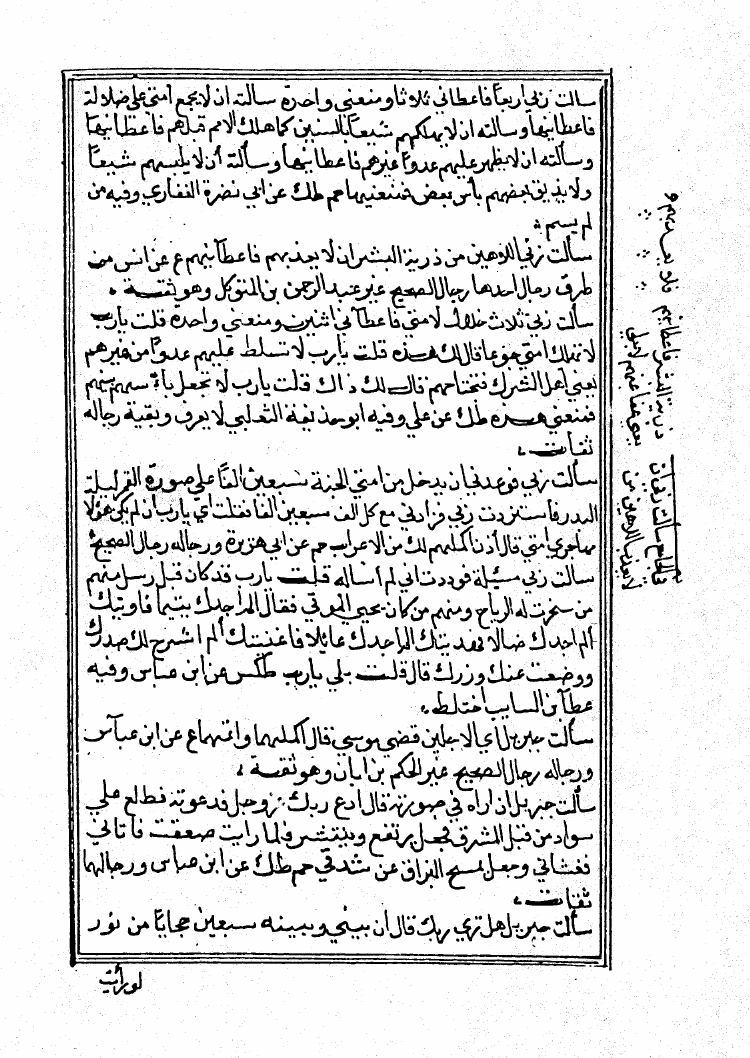 سالت ربي اربعا فاعطاني ثلاثا ومنعني واحدة سالته ان لا يجمع امتي على ضلالة
فاعطانيها وسالته ان لا يهلكهم شيعا بالسنين كما هلك الامم قبلهم فاعطانيها
وسالته ان لا يظهر عليهم عدوا غيرهم فاعطانيها وسالته أن لا يلبسهم شيعا
ولا يذيق بعضهم بأس بعض فمنعنيها حم طك عن ابي نضرة الغفاري وفيه من
لم يسم
سألت ربي اللاهين من ذرية البشر ان لا يعذبهم فاعطانيهم ع عن انس من
طرق رجال احدها رجال الصحيح غير عبد الرحمن بن المتوكل وهو ثقة
سألت ربي ثلاث خلال لامتي فاعطاني اثنين ومنعني واحدة قلت يارب
لا تهلك امتي جوعا قال لك هذه قلت يارب لا تسلط عليهم عدوا من غيرهم
يعني اهل الشرك فتجتاحهم قال لك ذاك قلت يارب لا تجعل بأسهم بينهم
فمنعني هذه طك عن علي وفيه ابو حذيفة الثعلبي لا يعرف وبقية رجاله
ثقات
سألت ربي فوعدني ان يدخل من امتي الجنة سبعين الفا على صورة القمر ليلة
البدر فاستزدت ربي فزادني مع كل الف سبعين الفا فقلت أي يارب ان لم يكن هؤلا
مهاجري امتي قال أذن اكملهم لك من الاعراب حم عن ابي هريرة ورجاله رجال الصحيح
سالت ربي مسئلة فوددت اني لم أساله قلت يارب قد كان قبلي رسل منهم
من سخرت له الرياح ومنهم من كان يحيي الموتي فقال الم اجدك يتيما فاويتك
ألم اجدك ضالا فهديتك الم اجدك عائلا فاغنيتك ألم اشرح لك صدرك
ووضعت عنك وزرك قال قلت بلي يارب طكس عن ابن عباس وفيه
عطا بن السايب اختلط
سألت جبريل أي الاجلين قضي موسي قال اكملهما واتمهما ع عن ابن عباس
ورجاله رجال الصحيح غير الحكم بن ابان وهو ثقة
سألت جبريل ان اراه في صورته قال ادع ربك عز وجل فدعوته فطلع علي
سواد من قبل المشرق فجعل يرتفع وينتشر فلما رايت صعقت فأتاني
فغشاني وجعل يمسح البزاق عن شدقي حم طك عن ابن عباس ورجالهما
ثقات
سألت جبريل هل تري ربك قال أن بيني وبينه سبعين حجابا من نور
لو رأيت
سألت ربي ان
لا يعذب اللاهين من
ذرية البشر فاعطانيهم